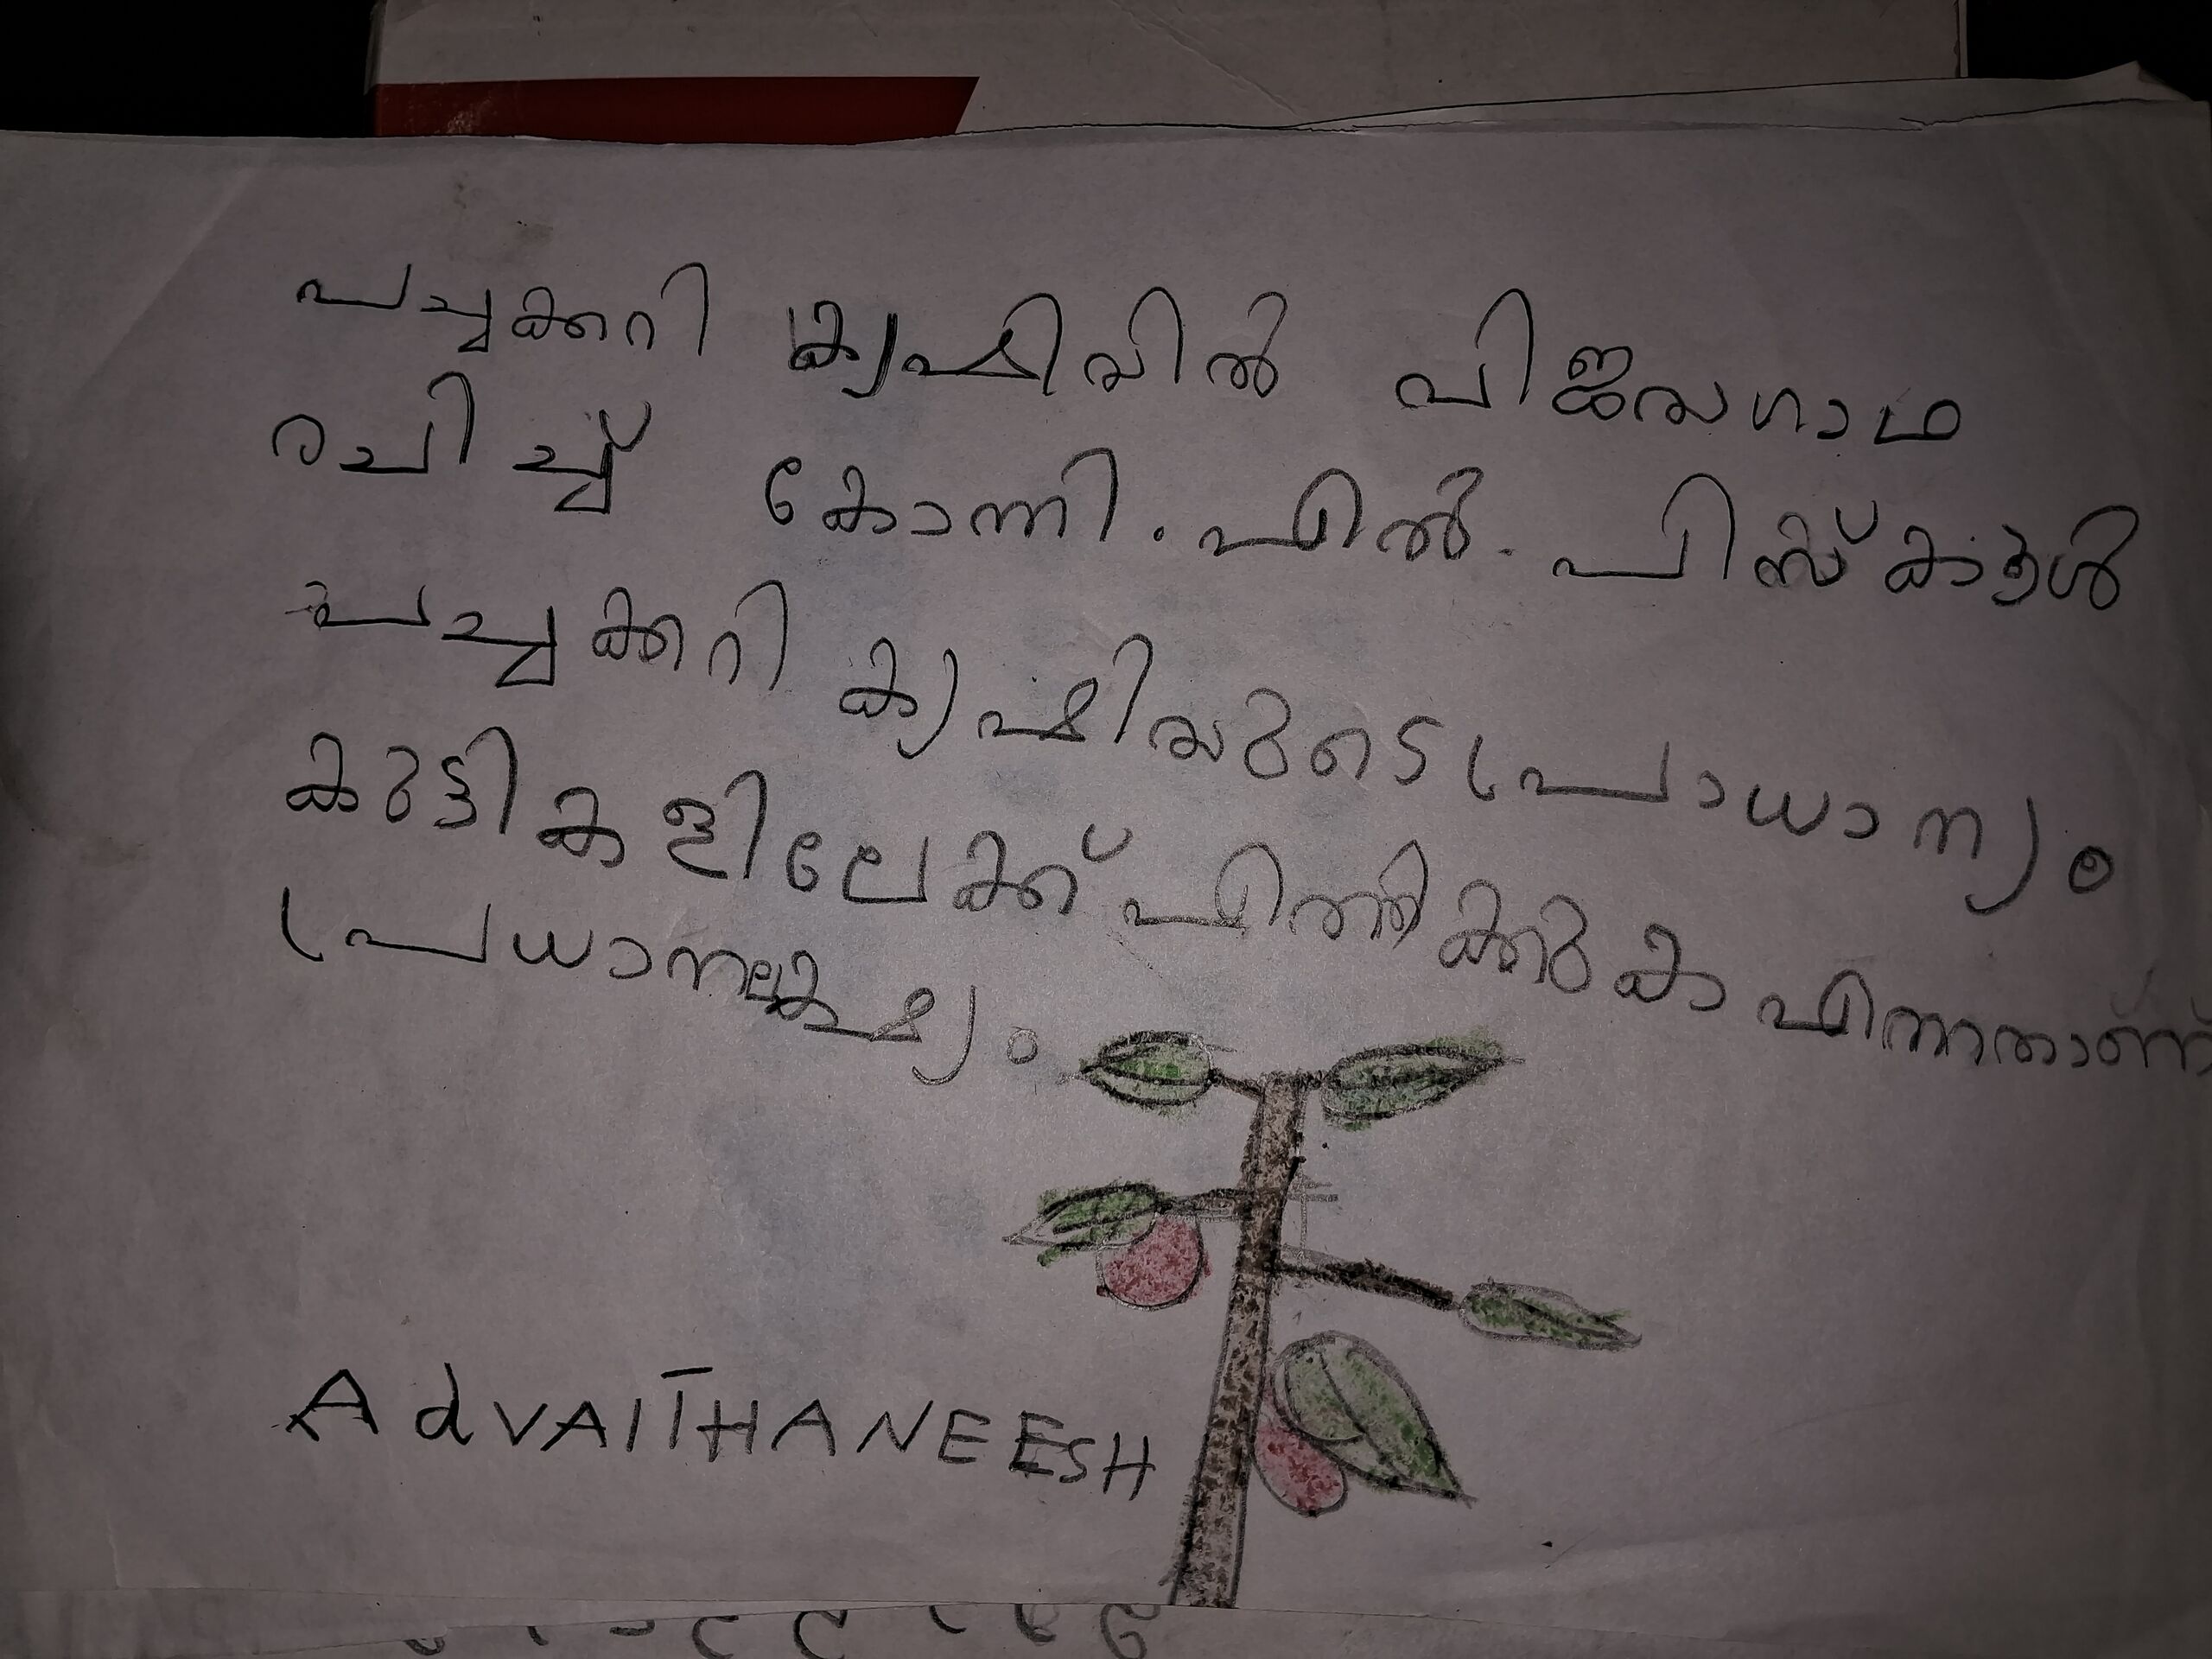 പച്ചക്കറി കൃഷിയിൽ വിജയഗാഥ
രചിച്ച് കോന്നി. എൽ. പിസ്കൂൾ
പച്ചക്കറി കൃഷിയുടെ പ്രാധാന്യം
കുട്ടികളിലേക്ക് എത്തിക്കുക എന്നതാണ്
പ്രധാനലക്ഷ്യം
AdVAITHANEESH